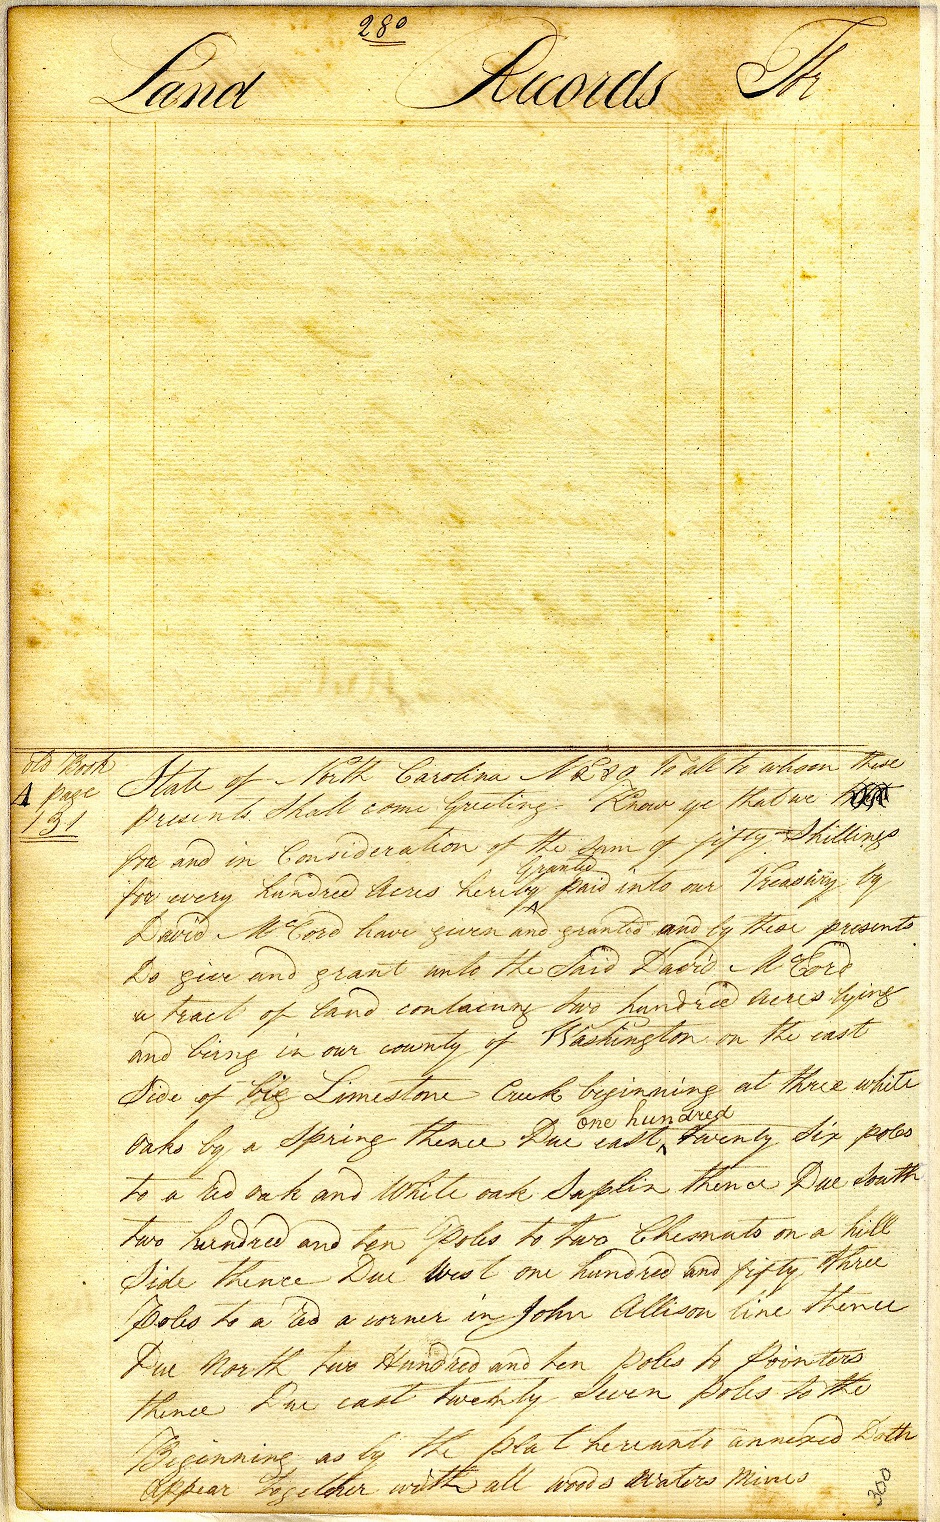 280
Land Records For
old Book
A page
131
State of North Carolina No 220 To all to whom these
presents Shall come Greeting Know ye that we
for and in Consideration of the Sum of fifty Shillings
Granted
for every hundred Acres hereby paid into our Treasury by
David McCord have given and granted and by these presents
Do give and grant unto the Said David McCord
a tract of land containing two hundred acres lying
and being in our county of Washington on the east
Side of big Limestone Creek beginning at three white
one hundred
oaks by a Spring thence Due east twenty Six poles
to a Red oak and White oak Saplin thence Due South
two hundred and ten Poles to two Chesnuts on a hill
Side thence Due West one hundred and fifty three
Poles to a Red a corner in John Allison line thence
Due North two Hundred and ten poles to Pointers
thence Due east twenty Seven poles to the
Beginning as by the plat hereunto annexed Doth
Appear Together with all woods waters Mines
300